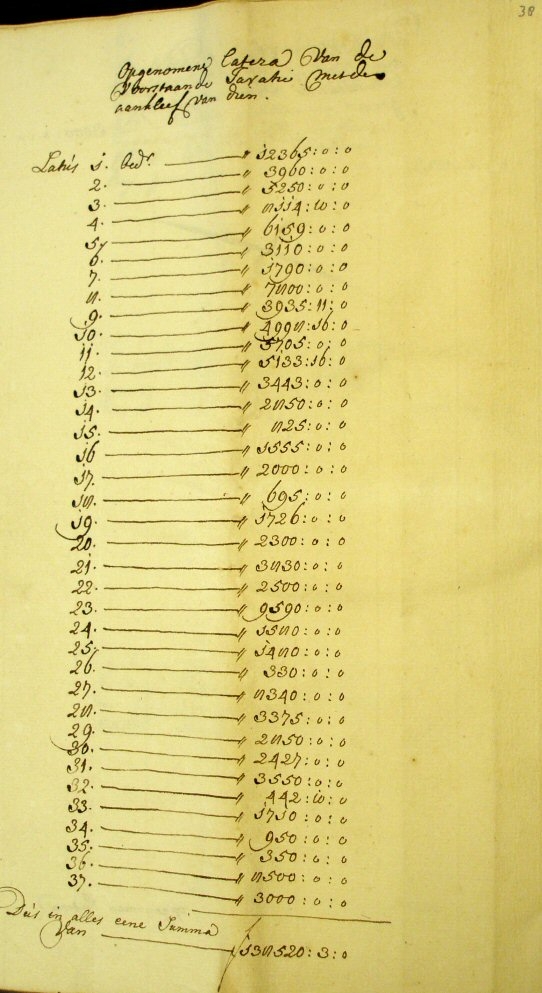 38
Opgenomene Latera Van de
Voorstaande Taxatie met de
aankleef van dien.
Latus 1. bedr. — " 12365:0:0
2. — " 3960:0:0
3. — " 5250:0:0
4. — " 8114:10:0
5. — " 6159:0:0
6. — " 3110:0:0
7. — " 1790:0:0
8. — " 7800:0:0
9. — " 3935:11:0
10. — " 4998:16:0
11. — " 5705:0:0
12. — " 5133:16:0
13. — " 3443:0:0
14. — " 2850:0:0
15. — " 825:0:0
16 — " 1555:0:0
17. — " 2000:0:0
18. — " 695:0:0
19. — " 1726:0:0
20. — " 2300:0:0
21. — " 3830:0:0
22. — " 2500:0:0
23. — " 9590:0:0
24. — " 1580:0:0
25. — " 1480:0:0
26. — " 330:0:0
27. — " 8340:0:0
28. — " 3375:0:0
29. — " 2850:0:0
30. — " 2427:0:0
31. — " 3550:0:0
32. — " 442:10:0
33. — " 1710:0:0
34. — " 950:0:0
35. — " 350:0:0
36. — " 8500:0:0
37. — " 3000:0:0
Dus in alles eene Summa
Van — 138520:3:0